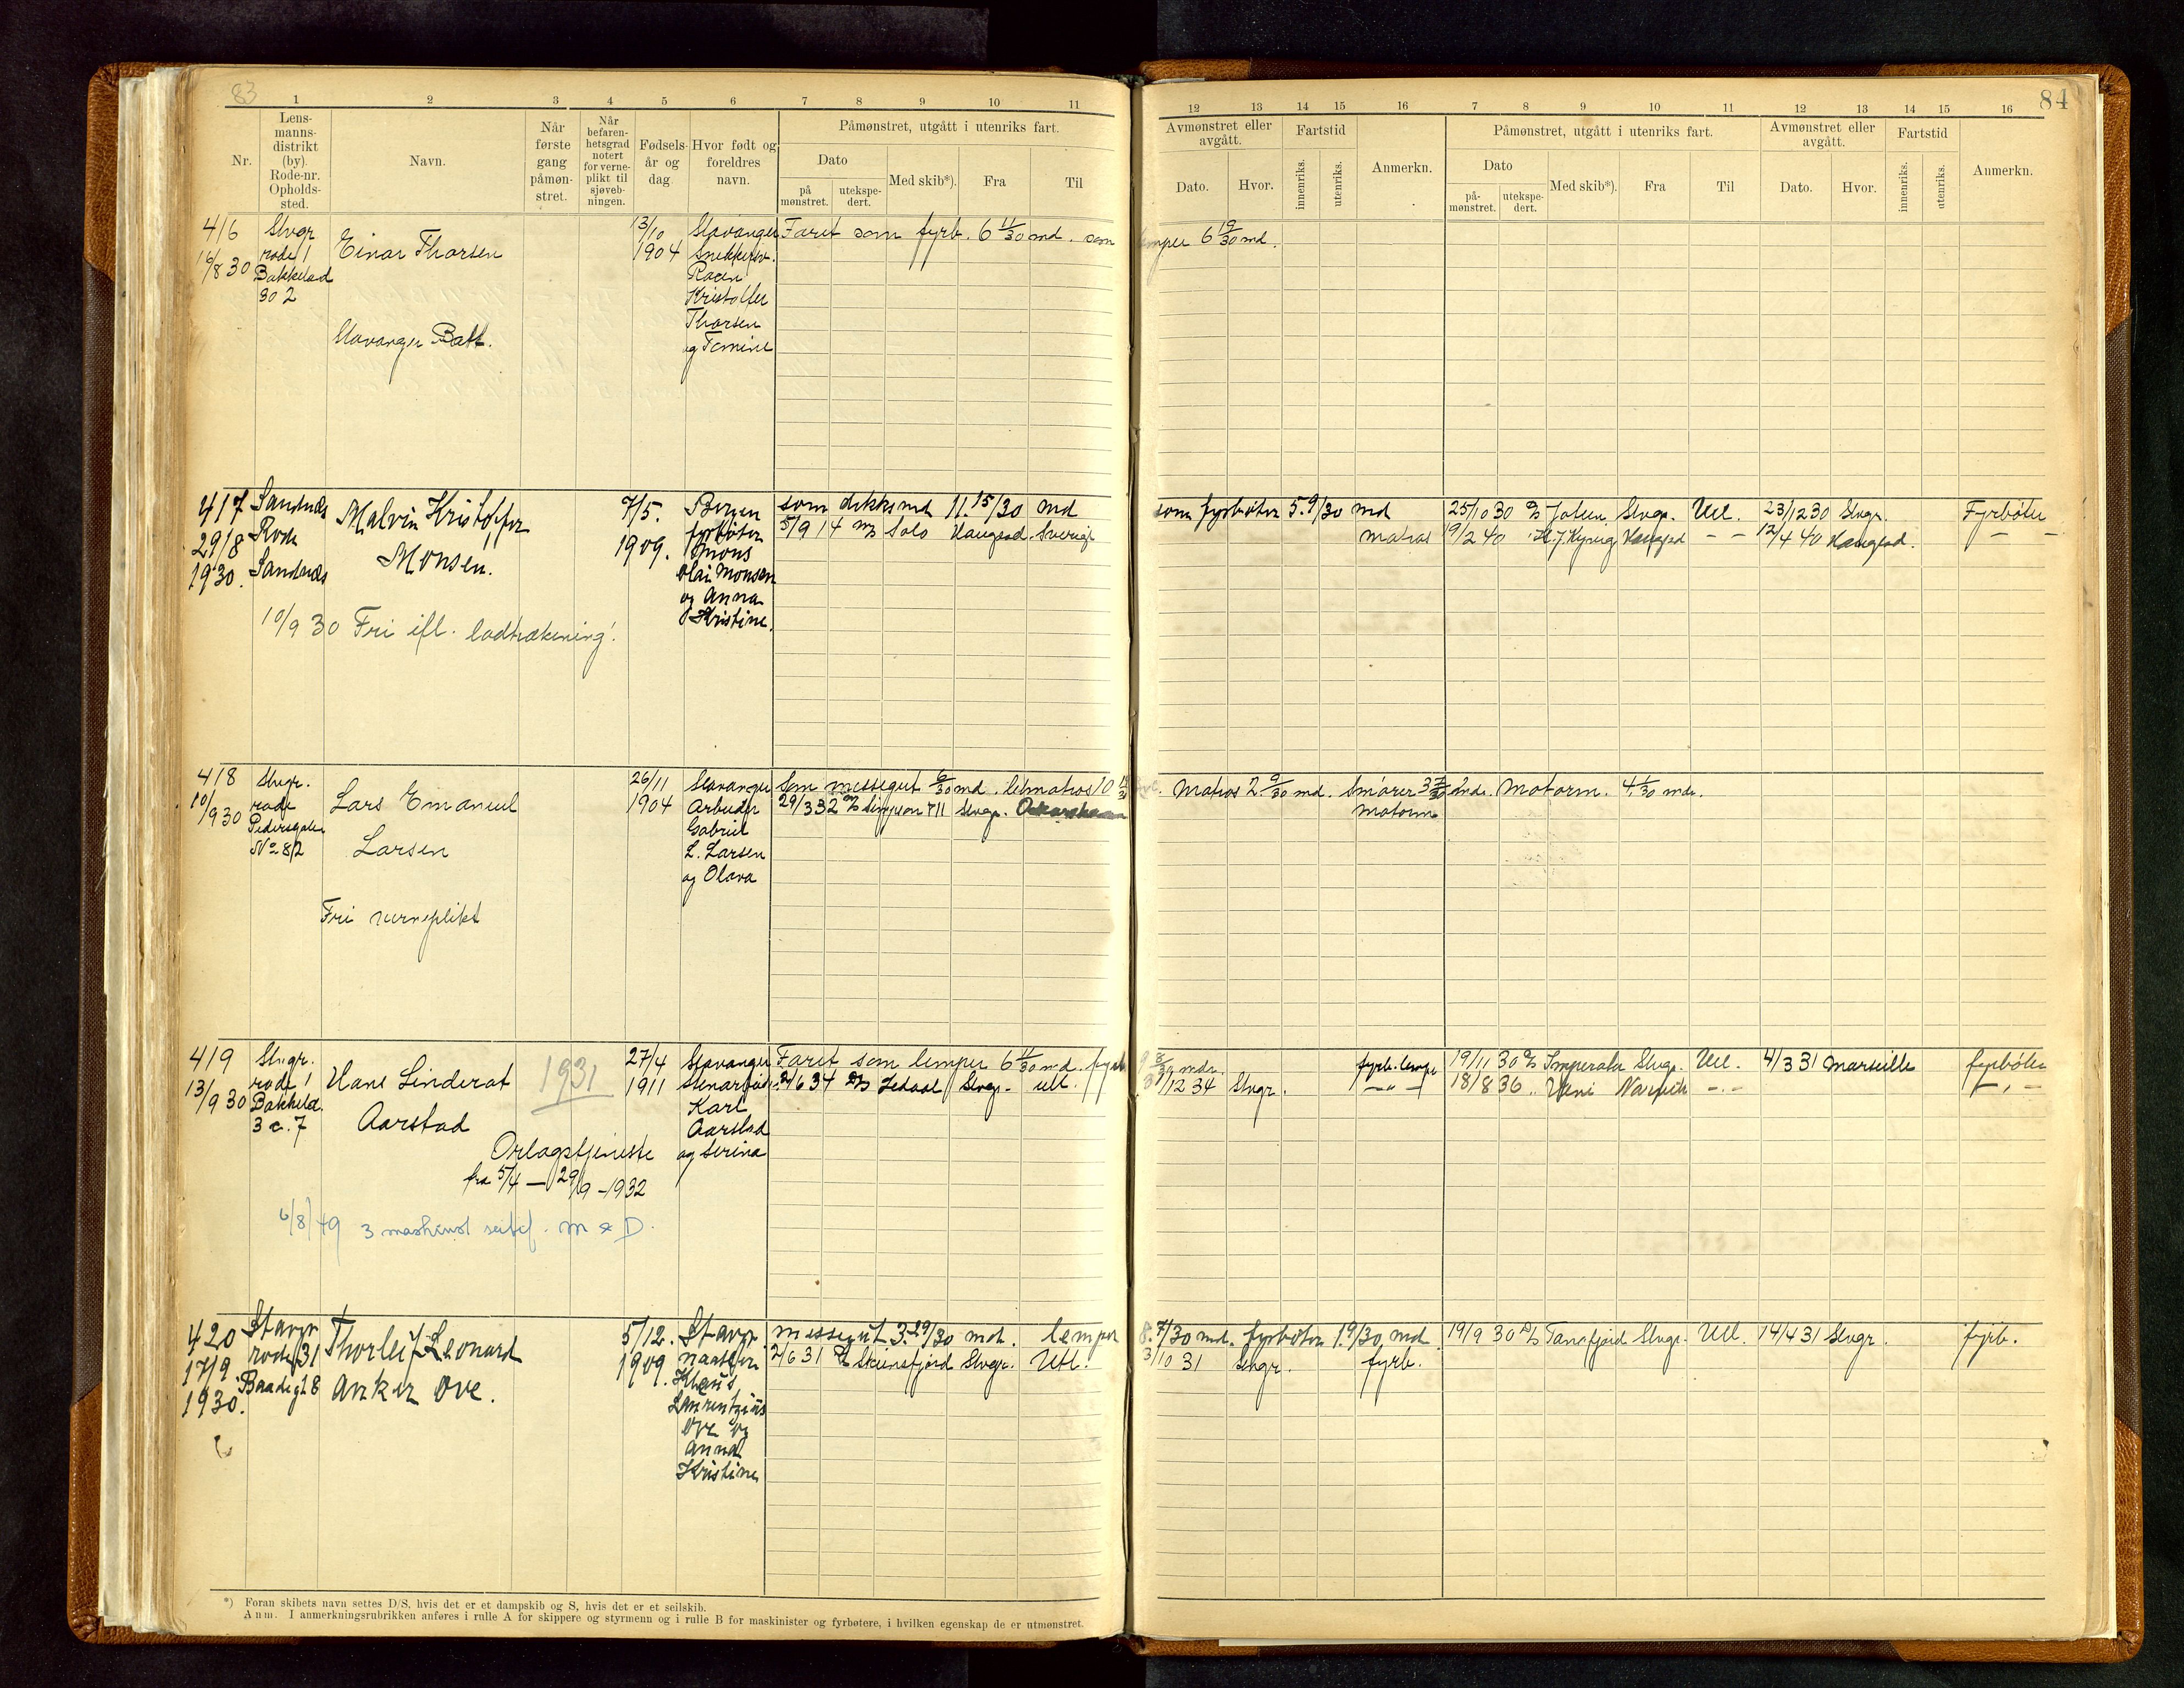 83
84
1 2 3 4 5 6 7 8 9 10 11
12 13 14 15 16 7 8 9 10 11 12 13 14 15 16
Nr.
Lens-
manns-
distrikt
(by).
Rode-nr.
Opholds-
sted.
Navn.
Når
første
gang
påmøn-
stret.
Når
befaren-
hetsgrad
notert
for verne-
plikt til
sjøveb-
ningen.
Fødsels-
år og
dag.
Hvor født og
foreldres
navn.
Påmønstret, utgått i utenriks fart.
Dato
på
mønstret.
utekspe-
dert.
Med skib*).
Fra
Til
Avmønstret eller
avgått.
Dato.
Hvor.
Fartstid
innenriks.
utenriks.
Anmerkn.
Påmønstret, utgått i utenriks fart.
Dato
på-
mønstret.
utekspe-
dert.
Med skib*).
Fra
Til
Avmønstret eller
avgått.
Dato.
Hvor.
Fartstid
innenriks.
utenriks.
Anmerkn.
416
16/8 30
Stvgr
rode 1
30 2
Einar Thorsen
Stavanger Batt.
13/10
1904
Stavanger
Kristoffer
Thorsen
og Tomine
Faret som fyrb. 6 11/30 md. som
lemper 6 19/30 md.
417
29/8
1930.
Sandnes
Rode
Sandnes
Malvin Kristoffer
Monsen.
10/9 30 Fri ifl. lodtrækning!
7/5.
1909.
Bergen
fyrbøter
Mons
Olai Monsen
og Anna
Kristine.
som dekksmd 11.15/30 md
5/9 14 M/S Solo Haugsd. Sverige
som fyrbøter 5.9/30 md
matros
25/10 30 D/S Jolun Stvgr. Utl. 23/12 30 Stvgr. Fyrbøter
19/2 40 Haugsd — — 12/4 40 Haugsd. — —
418
10/9 30
Stvgr.
rode
Pedersgaten
No 82
Lars Emanuel
Larsen
Fri verneplikt
26/11
1904
Stavanger
Arbeider
Gabriel
L. Larsen
og Olava
Som messegut 6/30 md. letmatros 10
29/3 32 Stvgr.
Matros 2. 9/30 md. Smører 3 mdr. Motorm. 4. 1/30 mdr.
motorm
419
13/9 30
Stvgr.
rode 1
3 c. 7
Hans Linderot
Aarstad
1931
Orlogstjeneste
fra 5/4 — 29/9 - 1932
6/8/49 3 maskinist sertif. M & D.
27/4
1911
Stavanger
Karl
Aarstad
og Serina
Faret som lemper 6 11/30 md. fyrb
6 34 D/S Ledaal Stvgr. utl.
9 8/30 mdr.
12 34 Stvgr.
fyrb. lemper
— " —
19/11 30 D/S Imperator Stvgr. Utl. 4/3 31 Marseille fyrbøter
18/8 36 Veni Narvik — . — — , —
420
17/9
1930.
Stavgr
rode 31
Baadsgt 8
Thorleif Leonard
Anker Ove.
5/12.
1909.
Stavgr.
Klaus
Laurentzius
Ove og
Anna
Kristine
messegut 3.29/30 md. lemper
2/6 31 D/S Steinsfjord Stvgr. Utl.
8.7/30 md. fyrbøter 1.9/30 md.
3/10 31 Stvgr. fyrb.
19/9 30 D/S Tanafjord Stvgr. Utl. 14/4 31 Stvgr. fyrb.
*) Foran skibets navn settes D/S, hvis det er et dampskib og S, hvis det er et seilskib.
Anm. I anmerkningsrubrikken anføres i rulle A for skippere og styrmenn og i rulle B for maskinister og fyrbøtere, i hvilken egenskap de er utmønstret.